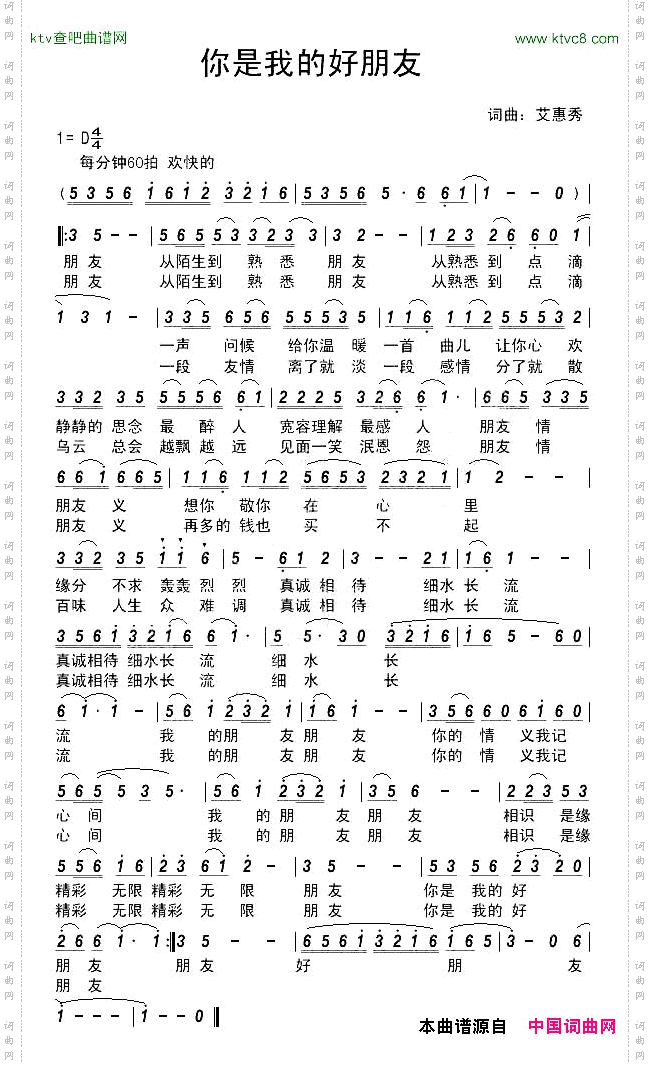 ktv查吧曲谱网
www.ktvc8.com
你是我的好朋友
词曲：艾惠秀
1=D 4/4
每分钟60拍 欢快的
(5 3 5 6 1 6 1 2 3 2 1 6 | 5 3 5 6 5 · 6 6 1 | 1 - - 0 ) |
‖: 3 5 - - | 5 6 5 5 3 5 3 2 3 3 | 3 2 - - | 1 2 3 2 6 6 0 1 |
朋友 从陌生到 熟悉 朋友 从熟悉到 点滴
朋友 从陌生到 熟悉 朋友 从熟悉到 点滴
1 3 1 - | 3 3 5 6 5 5 5 5 3 5 | 1 1 6 1 1 2 5 5 5 3 2 |
一声 问候 给你温 暖 一首 曲儿 让你心 欢
一段 友情 离了就 淡 一段 感情 分了就 散
3 3 2 3 5 5 5 5 6 6 1 | 2 2 2 5 3 2 6 6 1 · | 6 6 5 3 3 5 |
静静的 思念 最 醉 人 宽容理解 最感 人 朋友 情
乌云 总会 越飘 越 远 见面一笑 泯恩 怨 朋友 情
6 6 1 6 6 5 | 1 1 6 2 2 2 5 6 5 3 2 3 2 1 | 1 2 - - |
朋友 义 想你 敬你 在 心 里
朋友 义 再多的 钱也 买 不 起
3 3 2 3 5 1 1 6 | 5 - 6 1 2 | 3 - - 2 1 | 1 6 1 - - |
缘分 不求 轰轰 烈 烈 真诚 相 待 细水 长 流
百味 人生 众 难 调 真诚 相 待 细水 长 流
3 5 6 1 3 2 1 6 6 1 · | 5 5 · 3 0 | 3 2 1 6 | 1 6 5 - 6 0 |
真诚相待 细水长 流 细 水 长
真诚相待 细水长 流 细 水 长
6 1 · 1 - | 5 6 1 2 3 2 | 1 6 1 - | 3 5 6 6 0 6 1 6 0 |
流 我 的朋 友朋 友 你的 情 义我记
流 我 的朋 友朋 友 你的 情 义我记
5 6 5 5 3 5 · | 5 6 1 2 3 2 | 3 6 5 - | 2 2 3 5 3 |
心间 我 的 朋 友 朋 友 相识 是缘
心间 我 的 朋 友 朋 友 相识 是缘
5 5 6 1 6 | 2 3 6 1 2 - | 3 5 - - | 5 3 5 6 2 3 2 0 |
精彩 无限 精彩 无 限 朋 友 你是 我的 好
精彩 无限 精彩 无 限 朋 友 你是 我的 好
2 6 6 1 · 1 :‖ 3 5 - - | 6 5 6 1 3 2 1 6 1 6 5 | 3 - 0 6 |
朋友 朋友 好 朋 友
朋友
1 - - - | 1 - - 0 ‖
本曲谱源自 中国词曲网
词曲网